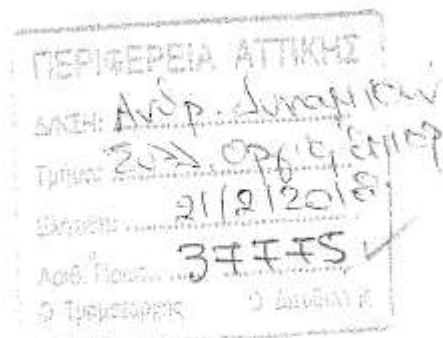 ΠΕΡΙΦΕΡΕΙΑ ΑΤΤΙΚΗΣ
Δ/ΝΣΗ: Ανθρ. Δυναμικού
Τμήμα: Συλλ. Οργ.
21/2/2018
Αριθ. Πρωτ. 37775
Ο Τμηματάρχης Ο Διευθυντής